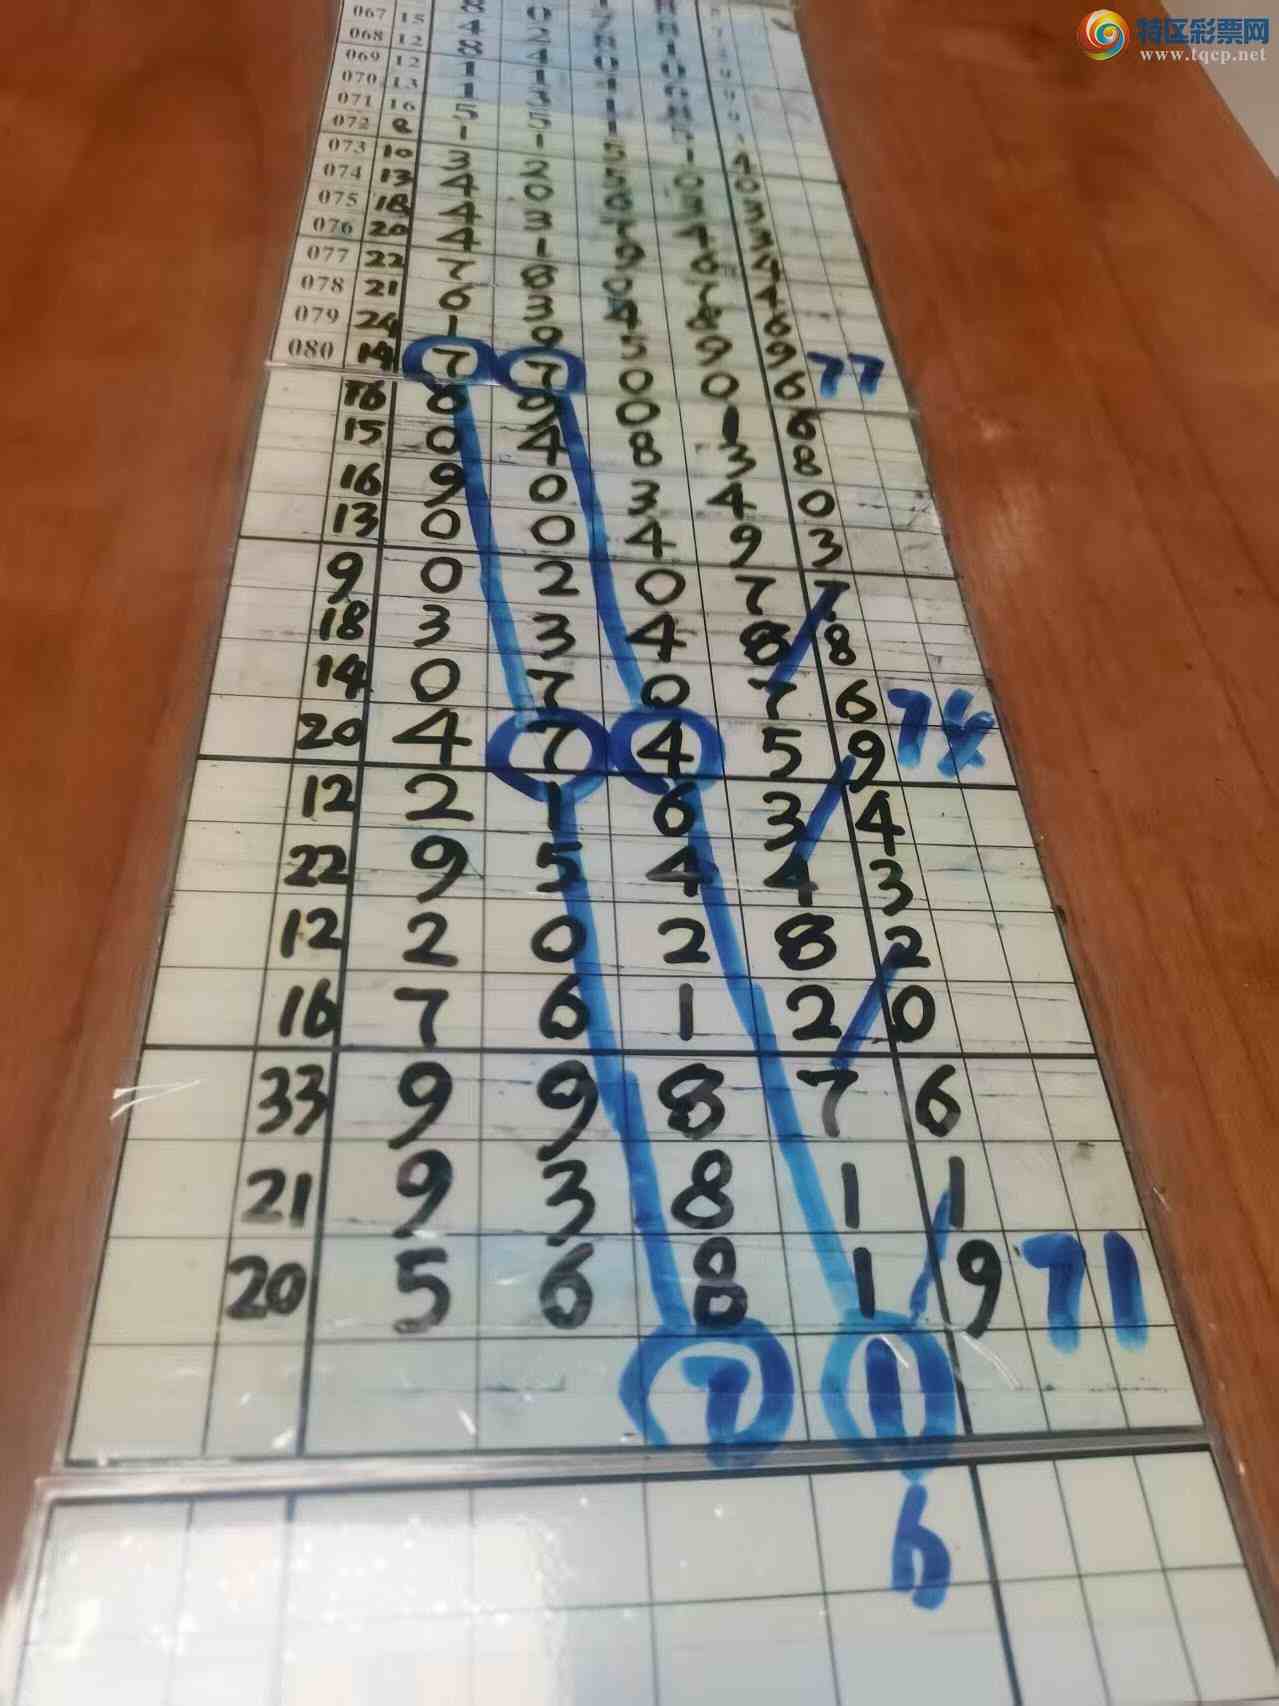 特区彩票网
www.tqcp.net
067 15 8 0
068 12 4 2
069 12 8 4
070 13 1 1
071 16 1 3
072 8 5 5
073 10 1 1 4
074 13 3 2 5 0
075 18 4 0
076 20 4 3
077 22 4 1 9 6 4
078 21 7 8 0 7
079 24 6 3 4 8 6
080 14 1 9 5 9 9 77
7 7 0 0 6
16 8 9 0 1 6
15 0 4 8 3 8
16 9 0 3 4 0
13 0 0 4 9 3
9 0 2 0 7 7
18 3 3 4 8 8
14 0 7 0 7 6
20 4 7 4 5 9 74
12 2 1 6 3 4
22 9 5 4 4 3
12 2 0 2 8 2
16 7 6 1 2 0
33 9 9 8 7 6
21 9 3 8 1 1
20 5 6 8 1 9 71
7 1
6